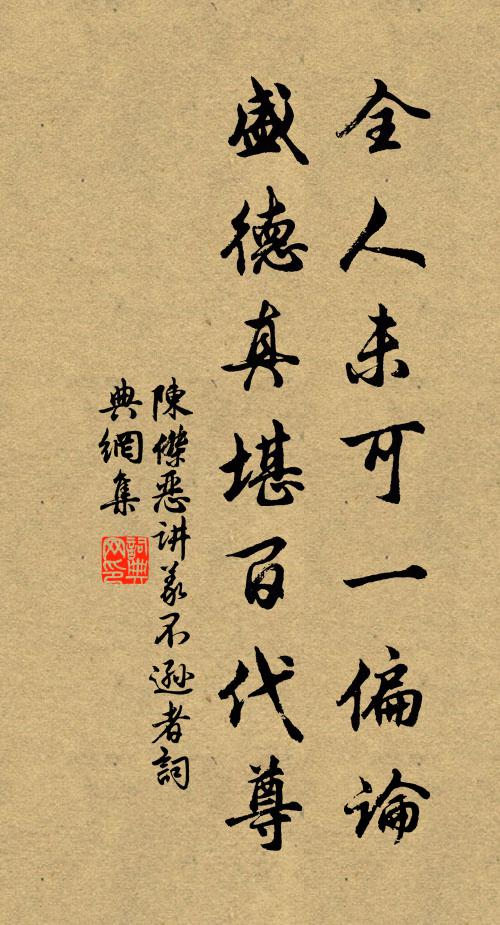 全人未可一偏論
盛德真堪百代尊
陳傑惡讲義不遜者詞
典網集
詞典
网印